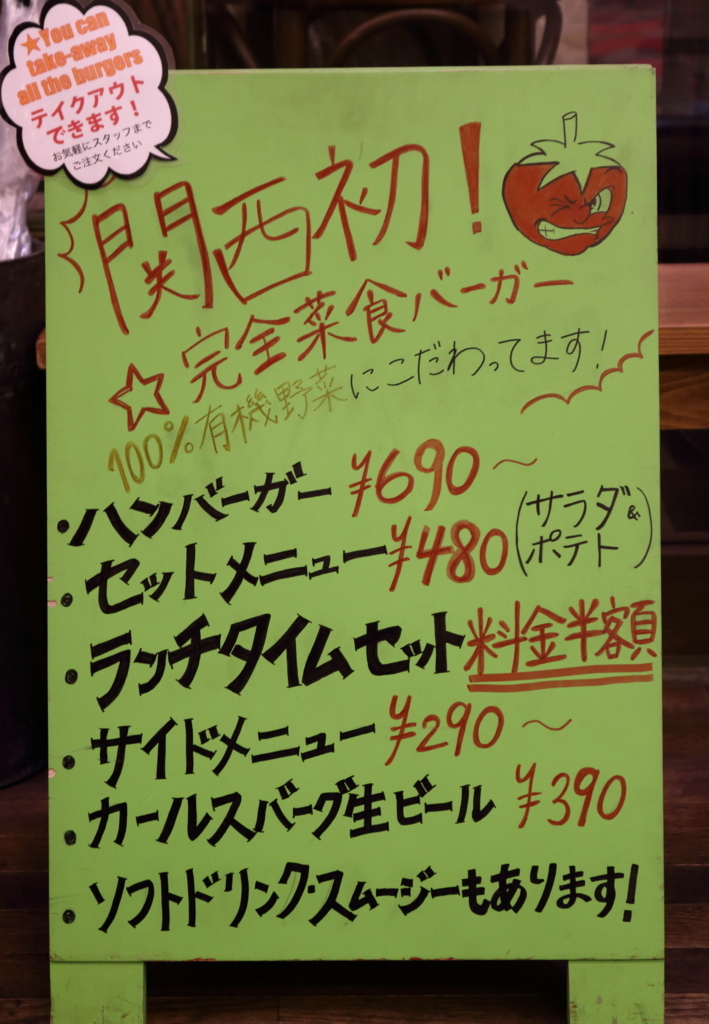 ★You can
take-away
all the burgers
テイクアウト
できます！
お気軽にスタッフまで
ご注文ください
関西初！
☆完全菜食バーガー
100%有機野菜にこだわってます！
・ハンバーガー ¥690～
・セットメニュー ¥480(サラダ&ポテト)
・ランチタイムセット料金半額
・サイドメニュー ¥290～
・カールスバーグ生ビール ¥390
・ソフトドリンク・スムージーもあります！